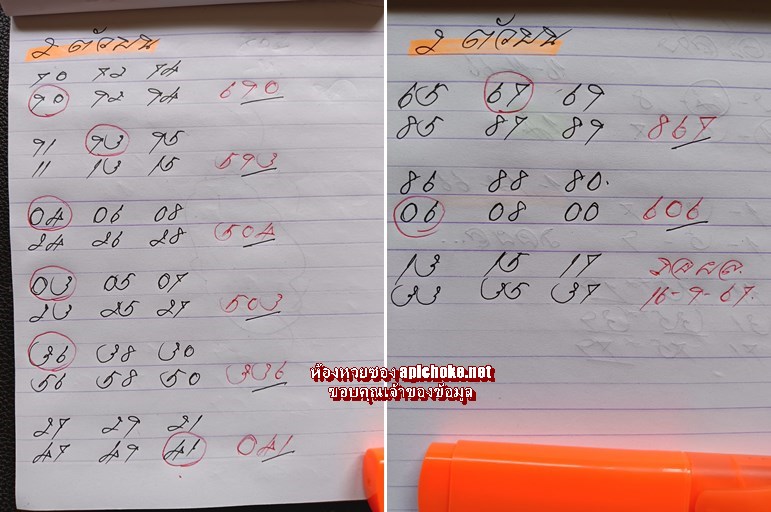 2 ตัวบน
70 72 74
90 92 94 690
91 93 95
11 13 15 593
04 06 08
24 26 28 504
03 05 07
23 25 27 503
36 38 30
56 58 50 336
27 29 21
47 49 41 041
2 ตัวบน
65 67 69
85 87 89 867
86 88 80.
06 08 00 606
13 15 17 รอผล.
33 35 37 16-9-67.
ห้องหวยซอง apichoke.net
ขอบคุณเจ้าของข้อมุล